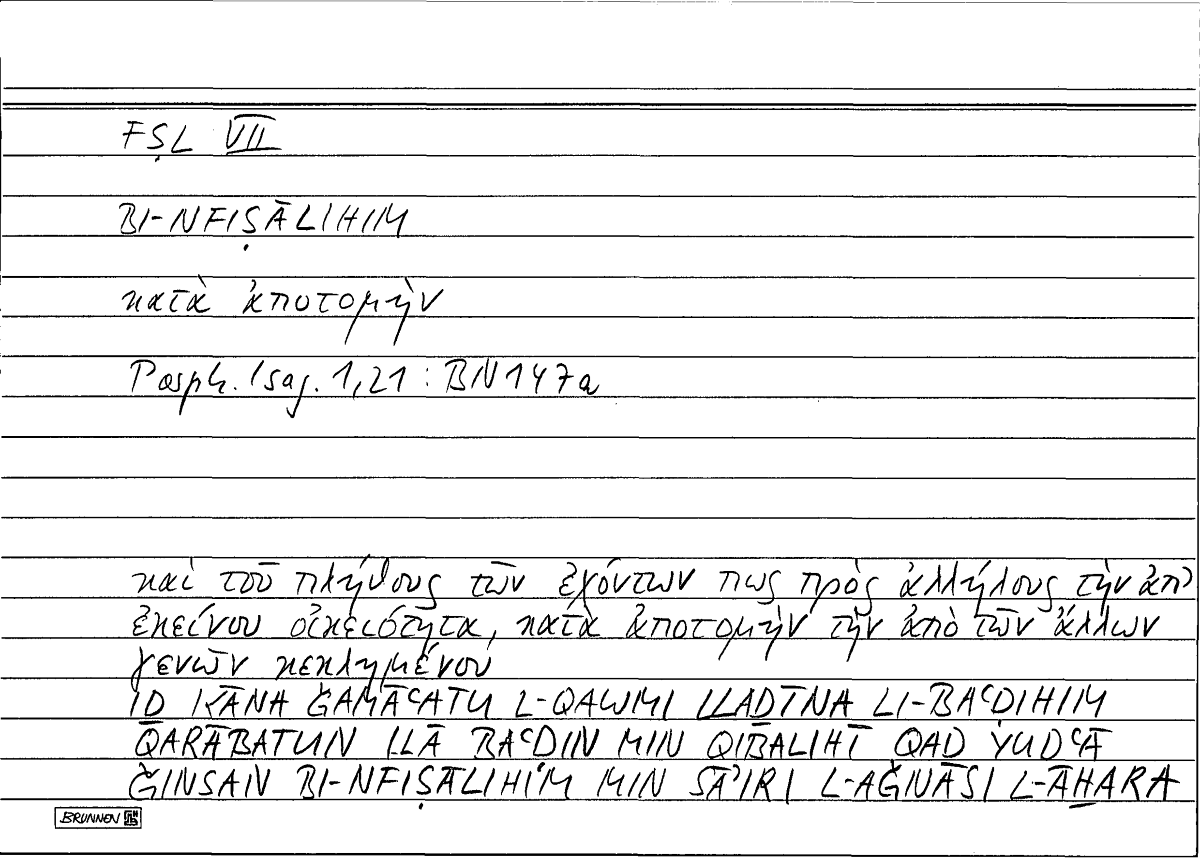 FṢL VII
BI-NFIṢĀLIHIM
κατὰ ἀποτομὴν
Porph. Isag. 1,21 : BN 147a
καὶ τοῦ πλήθους τῶν ἐχόντων πως πρὸς ἀλλήλους τὴν ἀπ'
ἐκείνου οἰκειότητα, κατὰ ἀποτομὴν τὴν ἀπὸ τῶν ἄλλων
γενῶν κεκλημένου
IḎ KĀNA ǦAMĀʿATU L-QAWMI LLAḎĪNA LI-BAʿḌIHIM
QARĀBATUN ILĀ BAʿḌIN MIN QIBALIHĪ QAD YUDʿĀ
ǦINSAN BI-NFIṢĀLIHIM MIN SĀʾIRI L-AǦNĀSI L-ĀḪARA
BRUNNEN